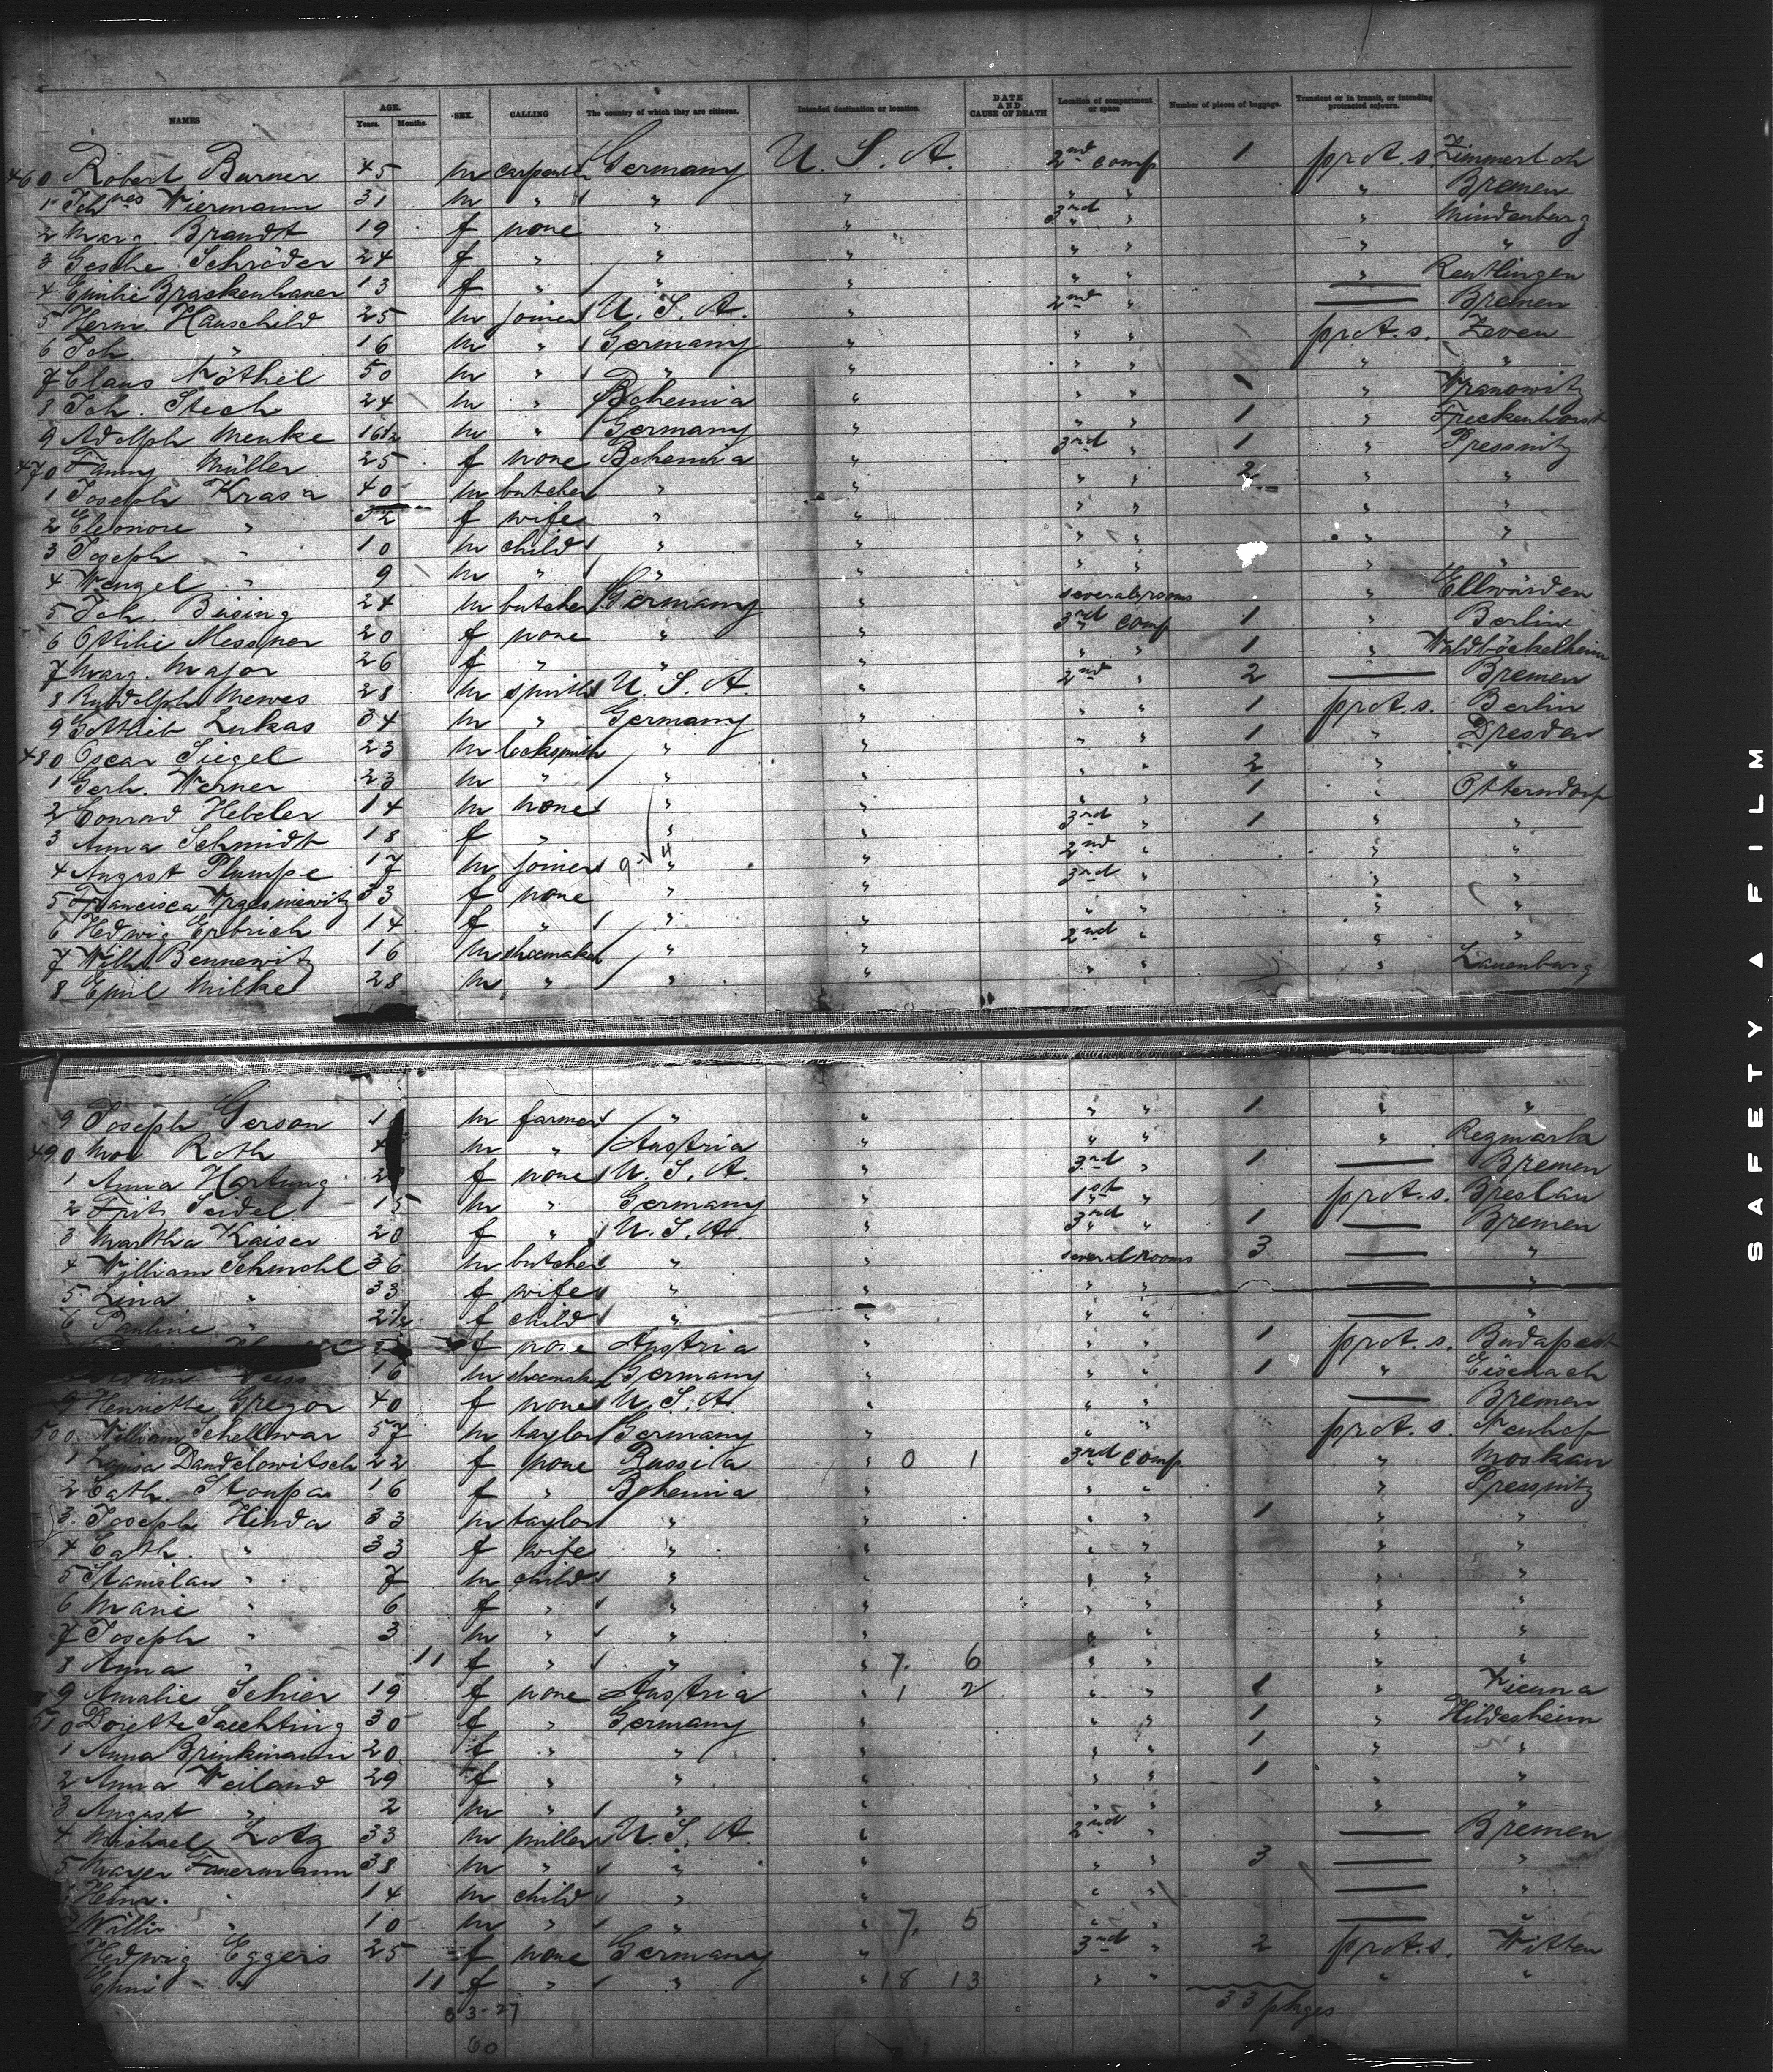 NAMES AGE. Years. Months. SEX. CALLING The country of which they are citizens. Intended destination or location. DATE AND CAUSE OF DEATH Location of compartment or space Number of pieces of baggage. Transient or in transit, or intending protracted sojourn.
460 Robert Burner 45 m carpenter Germany U. S. A. 2nd comp 1 prot. s.
1 Joh nes Wiermann 31 m " " " " " " Bremen
2 Marg. Brandt 19 f none " " 3rd " " Mindenburg
3 Gesche Schröder 24 f " " " " " " "
4 Emilie Brackenhauer 13 f " " " " " " Reutlingen
5 Herm. Hauschild 25 m joiner U. S. A. " 2nd " — Bremen
6 Joh " 16 m " Germany " " " prot. s. Zeven
7 Claus Köthel 50 m " " " " " " "
8 Joh. Stech 24 m " Bohemia " " " " Wranowitz
9 Adolph Menke 16 1/2 m " Germany " " " 1 " Freckenhorst
470 Fanny Müller 25 f none Bohemia " 3rd " 1 " Pressnitz
1 Joseph Krasa 40 m butcher " " " " 2 " "
2 Eleonore " 32 f wife " " " " " "
3 Joseph " 10 m child " " " " " "
4 Wenzel " 9 m " " " " " " "
5 Joh. Büsing 24 m butcher Germany " several rooms " Ellwürden
6 Ottilie Messner 20 f none " " 3rd comp 1 " Berlin
7 Marg. Major 26 f " " " " " 1 " Waldböckelheim
8 Rudolph Mewes 28 m smith U. S. A. " 2nd " 2 — Bremen
9 Gottlieb Lukas 34 m " Germany " " " 1 prot. s. Berlin
480 Oscar Siegel 23 m locksmith " " " " 1 " Dresden
1 Gerh. Werner 23 m " " " " " 2 " "
2 Conrad Hebeler 14 m none " " " " 1 " Otterndorf
3 Anna Schmidt 18 f " " " 3rd " 1 " "
4 August Plumpe 17 m joiner 9 4 " " 2nd " " "
5 Francisca 33 f none " " 3rd " " "
6 Hedwig Erbrich 14 f " " " " " " "
7 Wilh. Bennewitz 16 m shoemaker " " 2nd " " "
8 Emil Milke 28 m " " " " " " Lauenburg
9 Joseph Gerson m farmer " " " " 1 " "
490 Roth m " Austria " " " "
1 Anna Hartung f none U. S. A. " 3rd " 1 — Bremen
2 Fritz Seidel 15 m " Germany " 1st " prot. s. Breslau
3 Martha Kaiser 20 f " U. S. A. " 3rd " 1 — Bremen
4 William Schmohl 36 m butcher " " several rooms 3 — "
5 Lina " 33 f wife " " " " — "
6 Pauline " 2 1/2 f child " " " " — "
f none Austria " " " 1 prot. s. Budapest
16 m shoemaker Germany " " " 1 " Eisenach
9 Henriette Gregor 40 f none U. S. A. " " " — Bremen
500 William Schellwar 57 m taylor Germany " " " prot. s. Neuhof
1 Lousa Dandelowitsch 22 f none Russia " 0 1 3rd comp " Moskau
2 Cath. Stoupa 16 f " Bohemia " " " " Pressnitz
3 Joseph Hinda 33 m taylor " " " " 1 " "
4 Cath. " 33 f wife " " " " " "
5 Stanislau " 7 m child " " " " " "
6 Marie " 6 f " " " " " " "
7 Joseph " 3 m " " " " " " "
8 Anna " 11 f " " " 7. 6 " " " "
9 Amalie Schier 19 f none Austria " 1 2 " " 1 " Vienna
510 Doiette Saechting 30 f " Germany " " " 1 " Hildesheim
1 Anna Brinkmann 20 f " " " " " 1 " "
2 Anna Weiland 29 f " " " " " 1 " "
3 August " 2 m " " " " " " "
4 Michael Lotz 33 m miller U. S. A. " 2nd " — Bremen
5 Mayer Fauermann 38 m " " " " " 3 — "
Heinr. " 14 m child " " " " — "
Willie " 10 m " " " 7. 5 " " — "
Hedwig Eggers 25 f none Germany " 3rd " 2 prot. s. Witten
" 11 f " " " 18 13 " " " "
33-27 33 pkges
60
SAFETY ▲ FILM